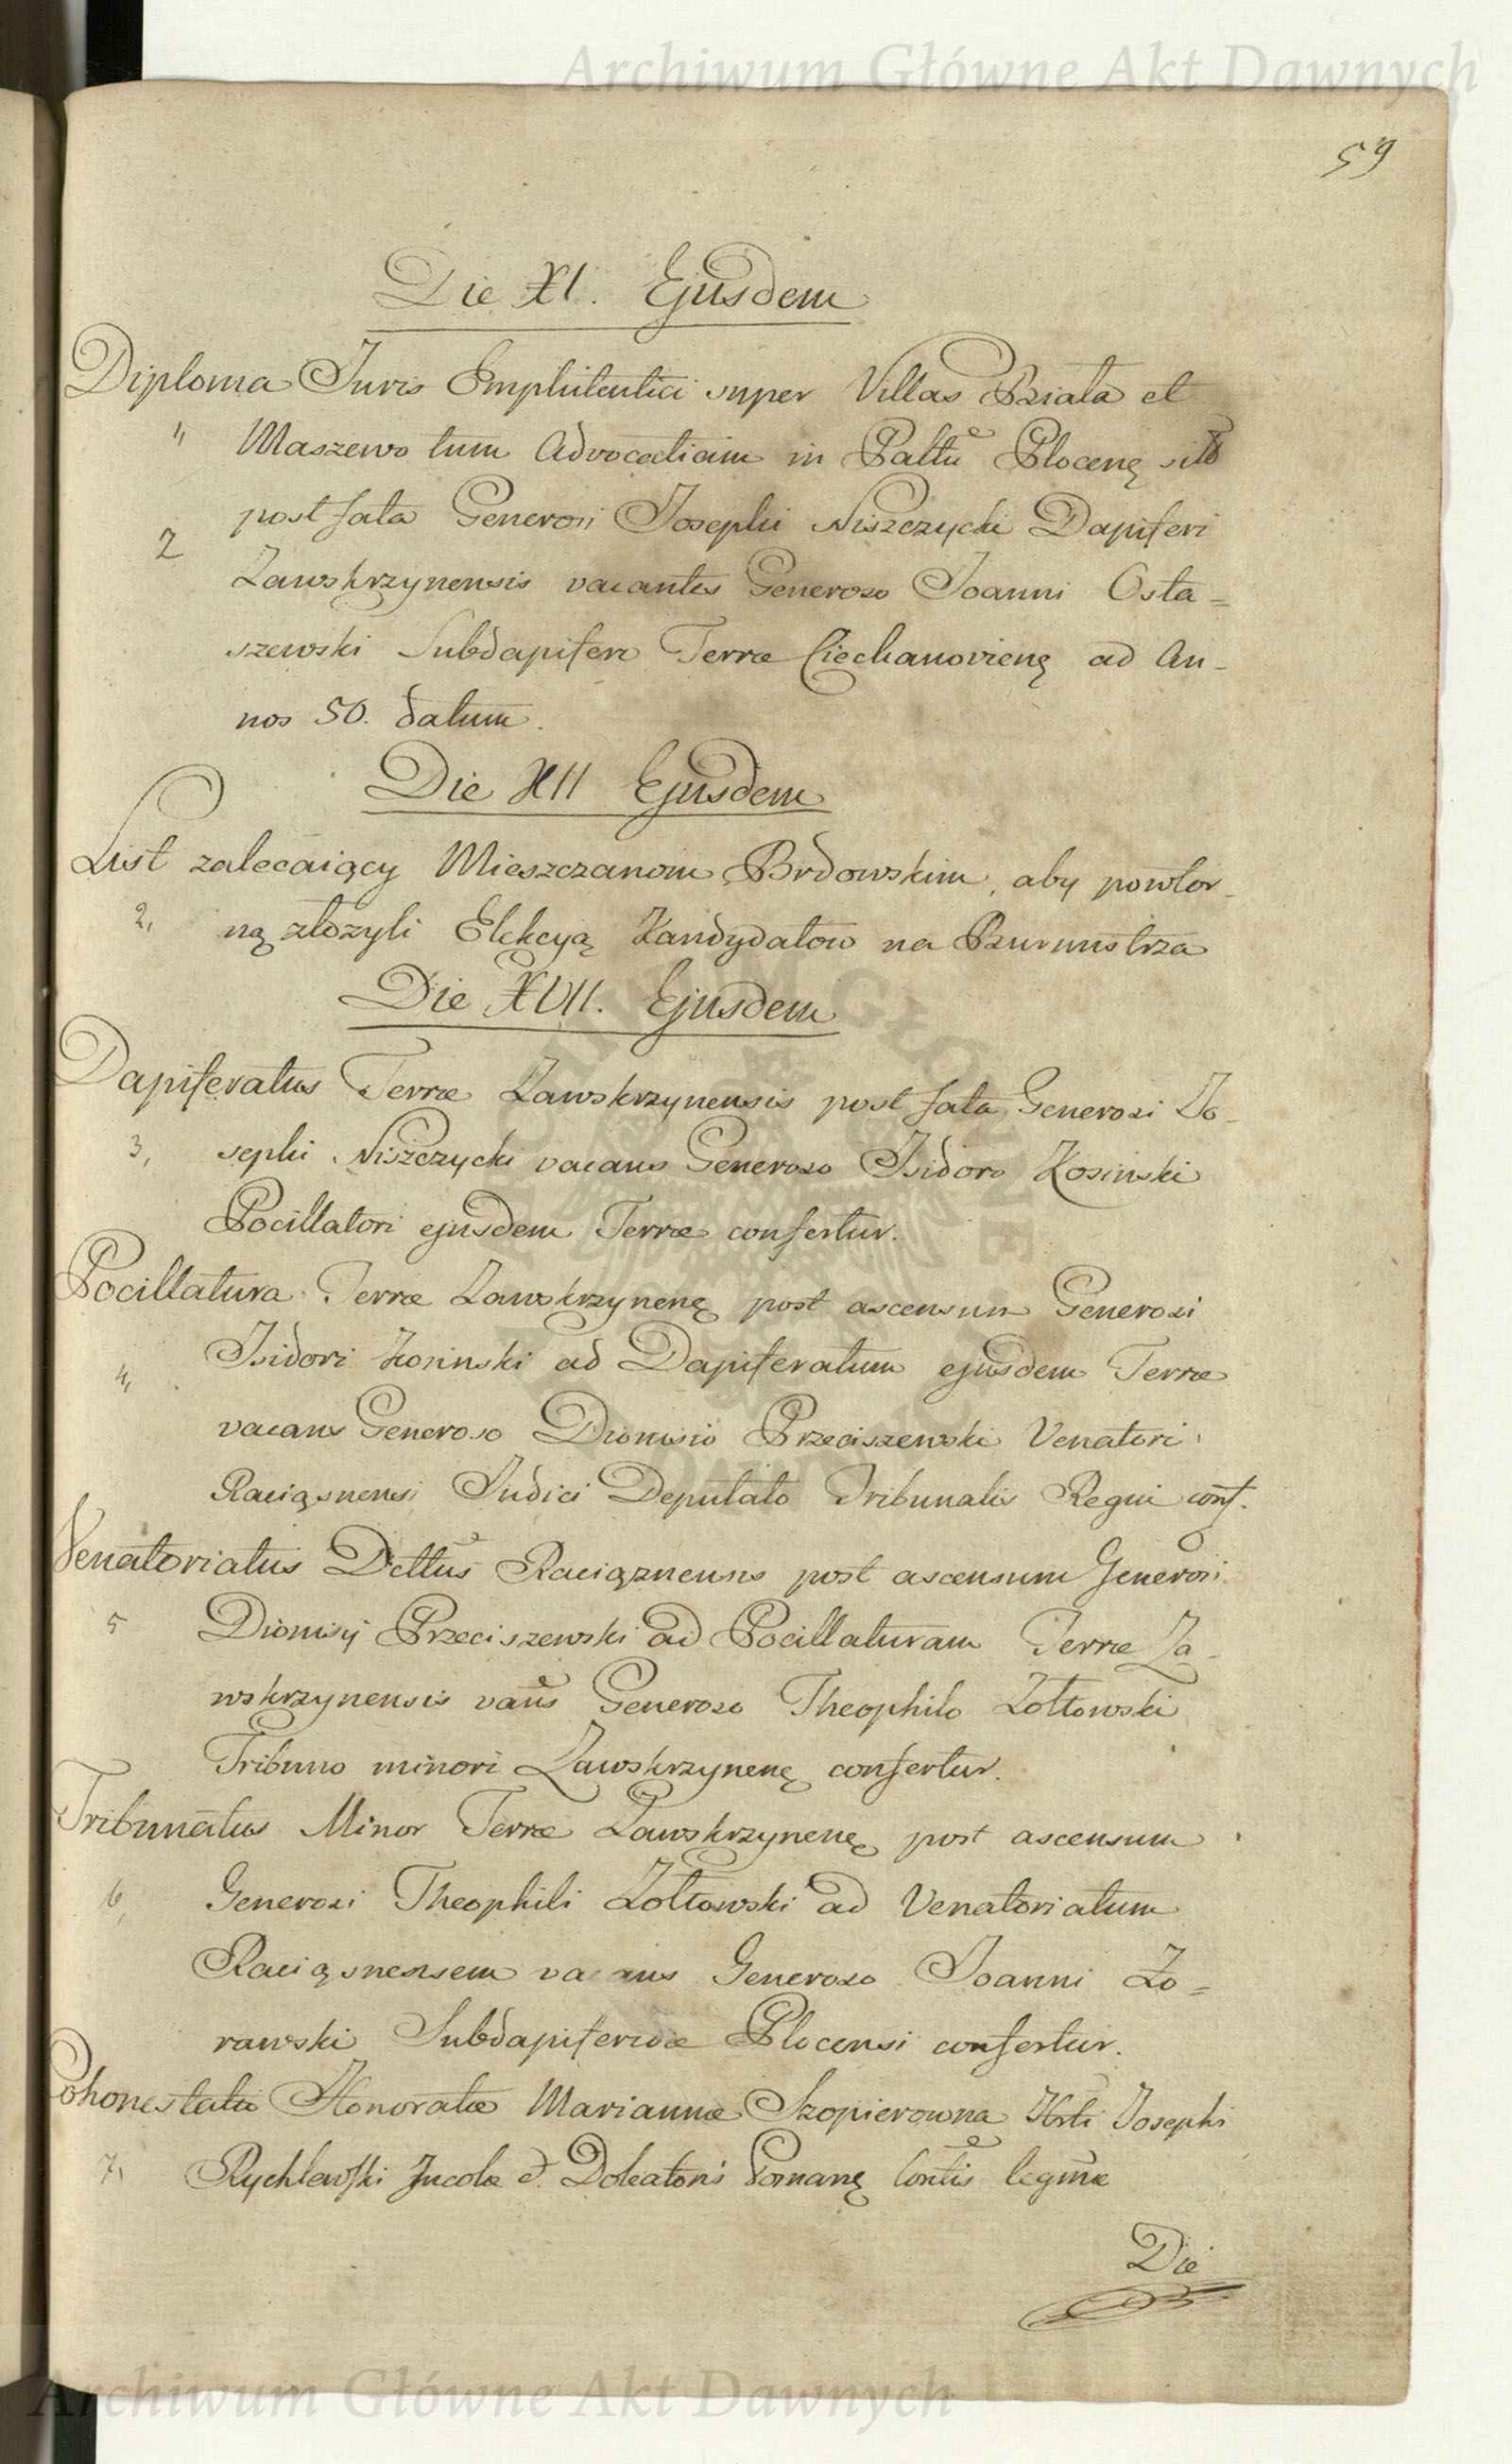 Archiwum Główne Akt Dawnych
59
Die XI. Ejusdem
Diploma Juris Emphiteutici super Villas Biała et
1, Maszewo tum Advocatiam in Pałtu Plocenę sitis
post fata Generosi Josephi Niszczycki Dapiferi
2
Zawskrzynensis vacantes Generoso Joanni Osta=
szewski Subdapifero Terræ Ciechanovienę ad An-
nos 50. datum.
Die XII Ejusdem
List zalecaiący Mieszczanom Brdowskim, aby powtor-
2, ną złożyli Elekcyą Kandydatow na Burmistrza
Die XVII. Ejusdem
Dapiferatus Terræ Zawskrzynensis post fata Generosi Jo-
3, sephi Niszczycki vacans Generoso Isidoro Kosinski
Pocillatori ejusdem Terræ confertur.
Pocillatura Terræ Zawskrzynenę post ascensum Generosi
Isidori Kosinski ad Dapiferatum ejusdem Terræ
4,
vacans Generoso Dionisio Przeciszewski Venatori
Raciąznensi Judici Deputato Tribunalis Regni conf.
Venatoriatus Dttus Raciąznensis post ascensum Generosi
5 Dionisij Przeciszewski ad Pocillaturam Terræ Za-
wskrzynensis vans Generoso Theophilo Zołtowski
Tribuno minori Zawskrzynenę confertur.
Tribunatus Minor Terræ Zawskrzynenę post ascensum
6, Generosi Theophili Zołtowski ad Venatoriatum
Raciąznensem vacans Generoso Joanni Zo=
rawski Subdapiferidæ Plocensi confertur.
Cohonestatio Honoratæ Mariannæ Szopierowna Hrti Josephi
7, Rychlewski Incolæ et Doleatoris Posnanę Contis legmæ
Die
Archiwum Główne Akt Dawnych